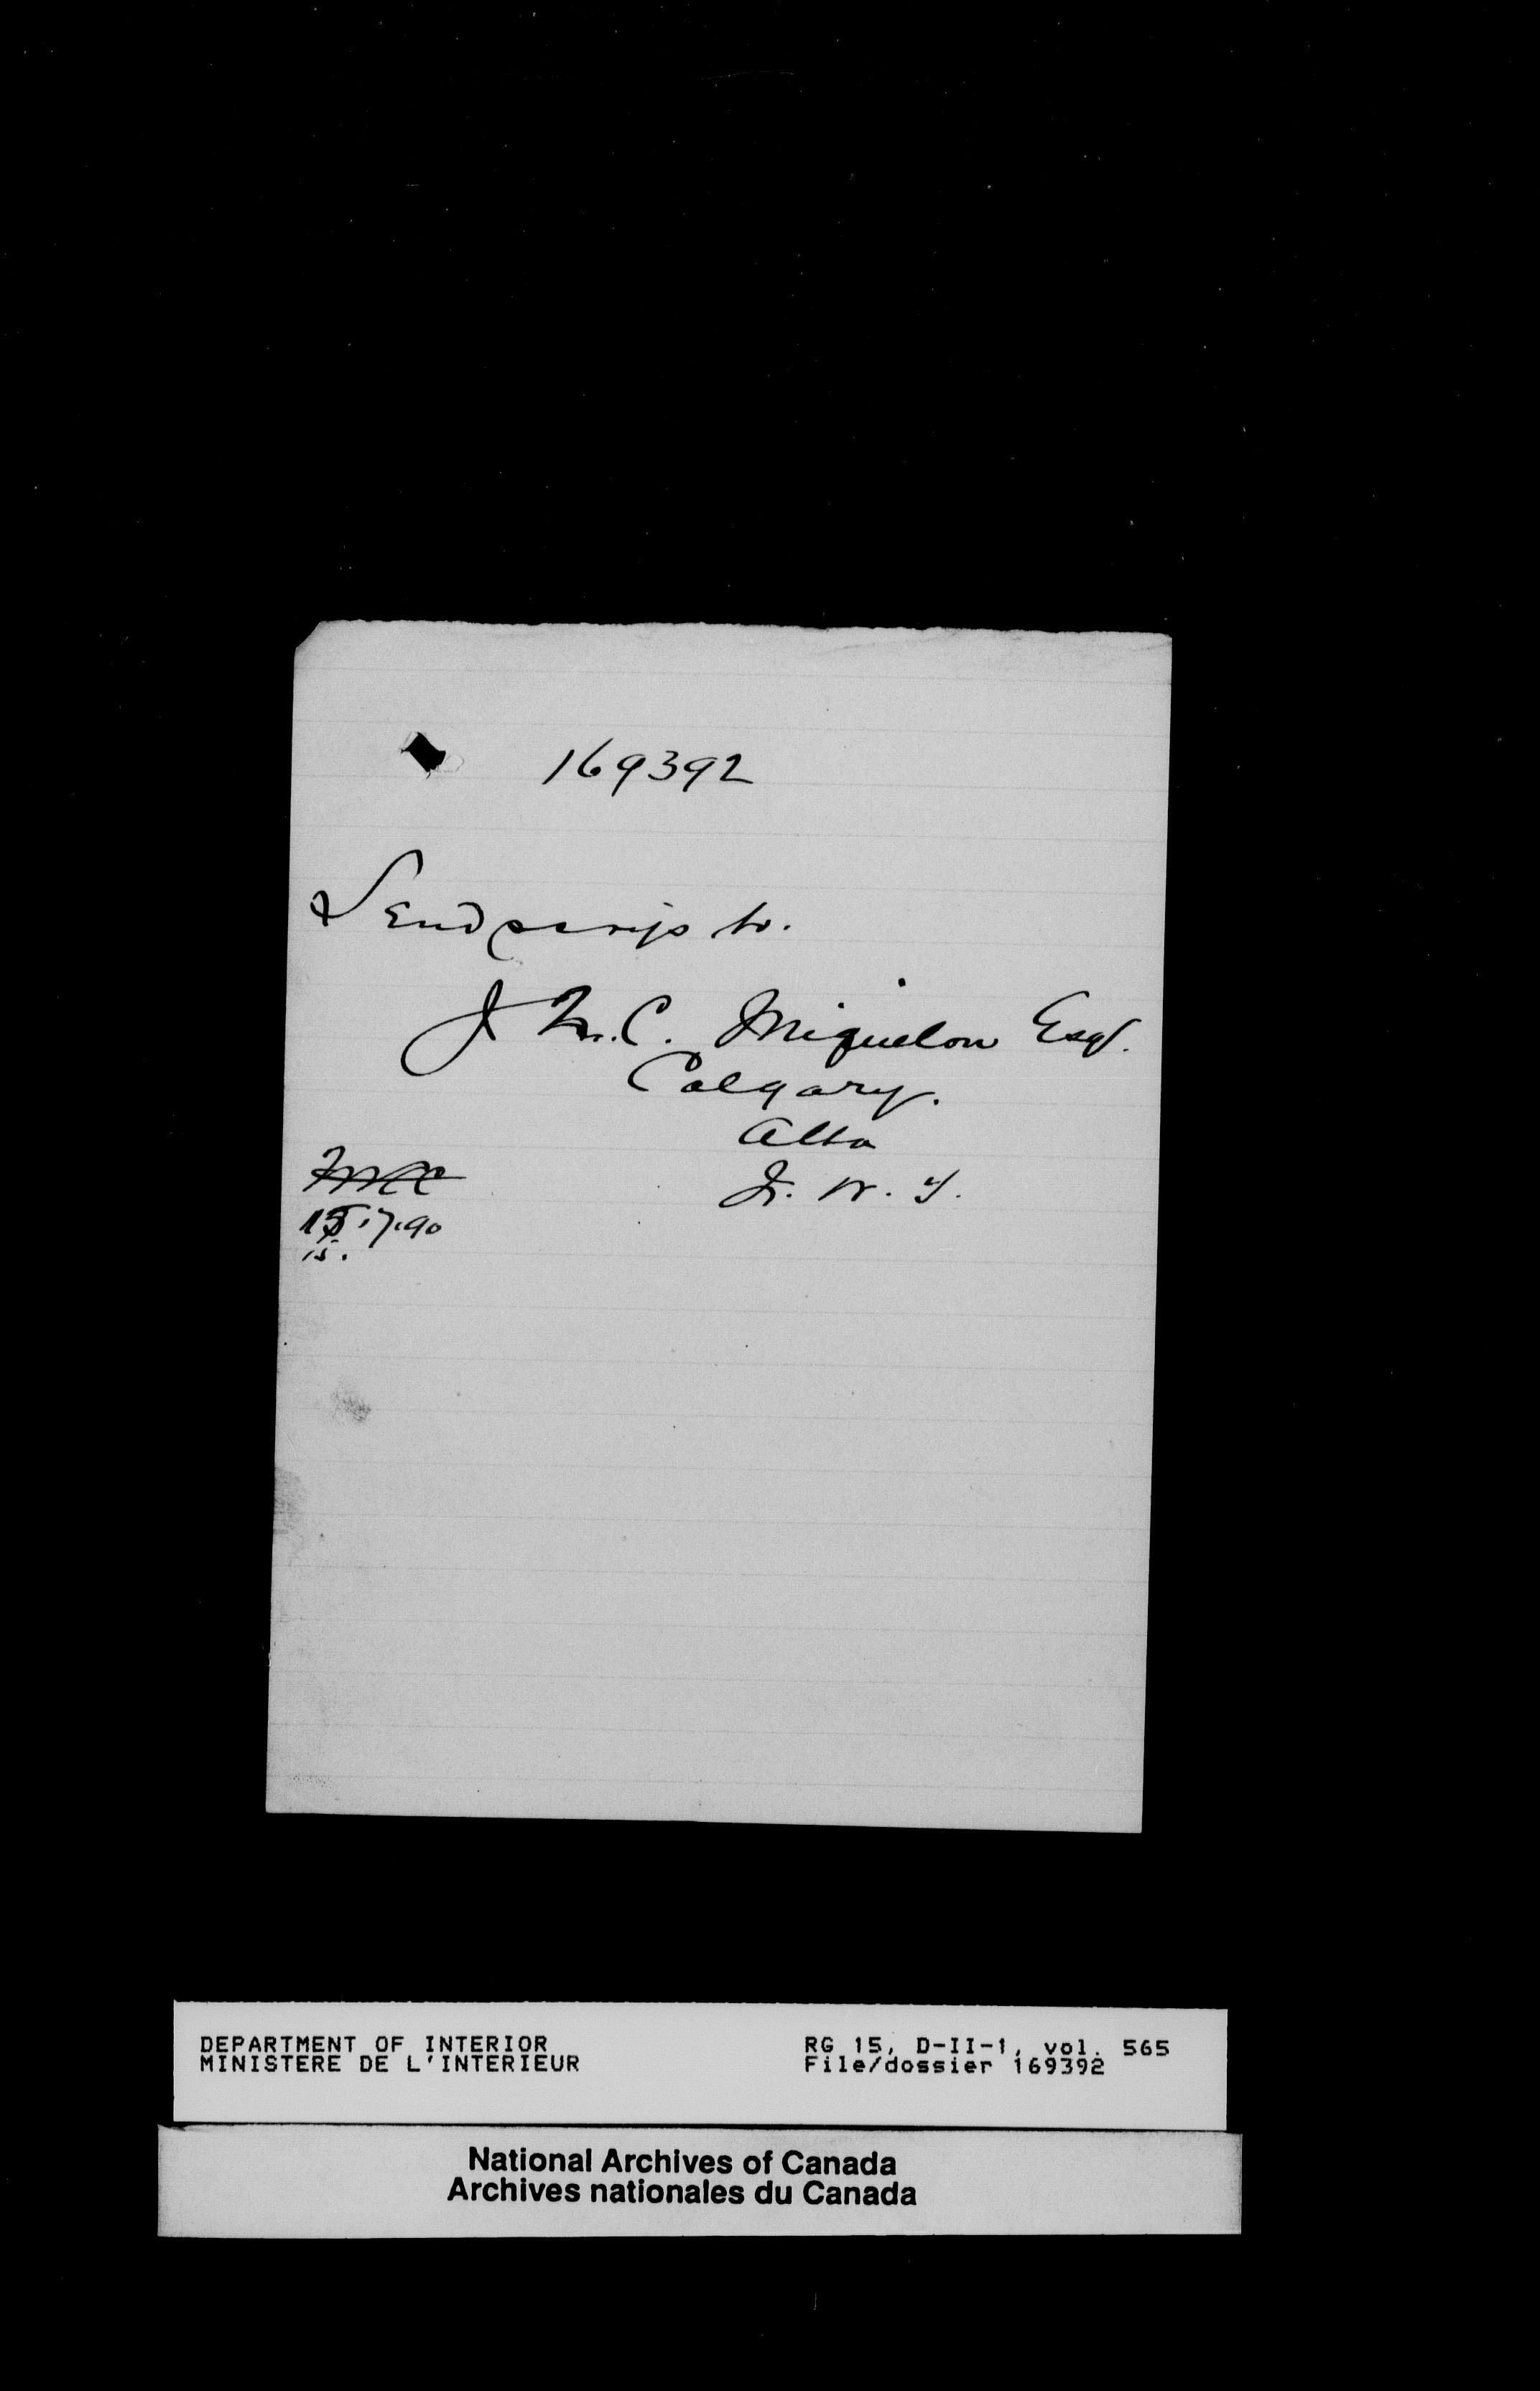 169392
Send scrip to.
J. M. C. Miquelon Esq.
Calgary.
Alta
N. W. T.
.7.90
15.
DEPARTMENT OF INTERIOR
MINISTERE DE L'INTERIEUR
RG 15, D-II-1, vol. 565
File/dossier 169392
National Archives of Canada
Archives nationales du Canada